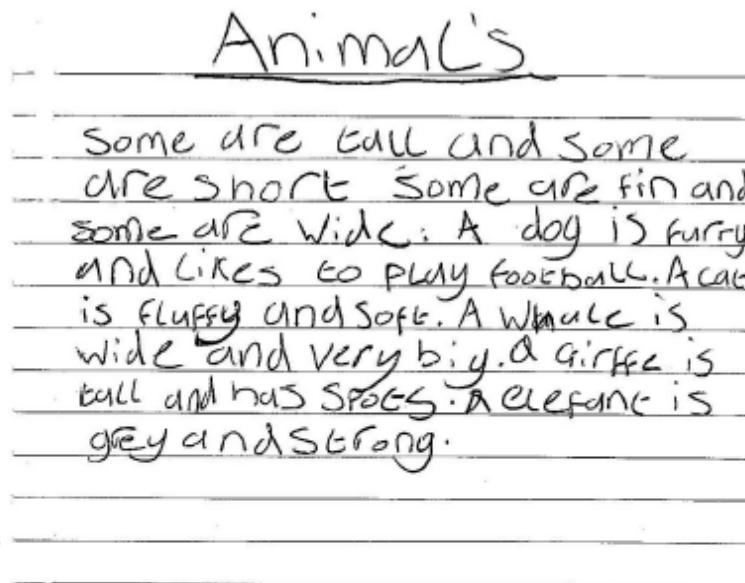 Animal's
some are tall and some
are short some are fin and
some are wide. A dog is furry
and likes to play football. A cat
is fluffy and soft. A Whale is
wide and very big. a Girffe is
tall and has spots. A elefant is
grey and strong.